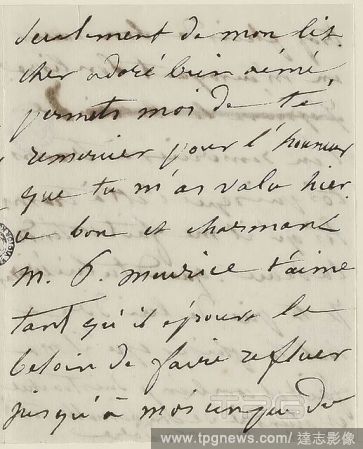 seulement de mon lit
cher adoré bien aimé
permets moi de te
remercier pour l'honneur
que tu m'as valu hier
ce bon et charmant
M. P. Meurice t'aime
tant qu'il éprouve le
besoin de faire refluer
jusqu'à moi un peu du
www.tpgnews.com / 達志影像